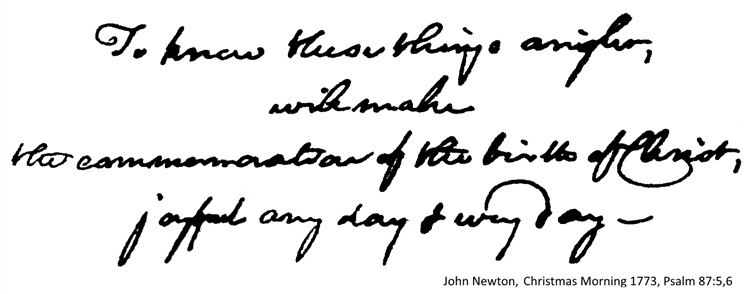 To know these things aright,
will make
the commemoration of the birth of Christ,
joyful any day & every day –
John Newton, Christmas Morning 1773, Psalm 87:5,6